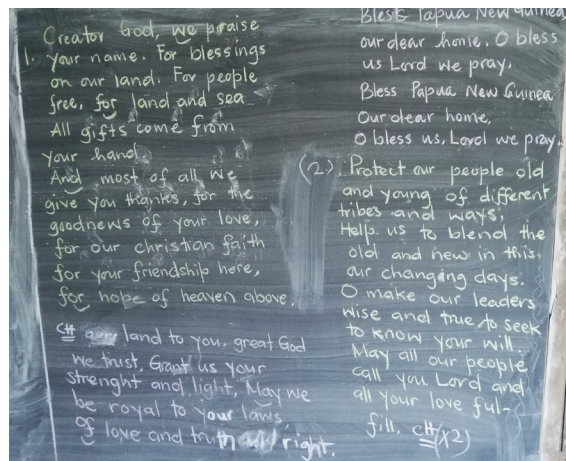 Creator God, we praise
1. your name. For blessings
on our land. For people
free, for land and sea
All gifts come from
your hand
And most of all we
give you thanks, for the
goodnews of your love,
for our christian faith
for your friendship here,
for hope of heaven above.
CH our land to you, great God
we trust, Grant us your
strenght and light, May we
be royal to your laws
of love and truth and right.
Bless Papua New Guinea
our dear home. O bless
us Lord we pray.
Bless Papua New Guinea
Our dear home,
O bless us, Lord we pray
(2) Protect our people old
and young of different
tribes and ways;
Help us to blend the
old and new in this
our changing days.
O make our leaders
wise and true to seek
to know your will.
May all our people
call you Lord and
all your love ful-
fill. CH (x2)